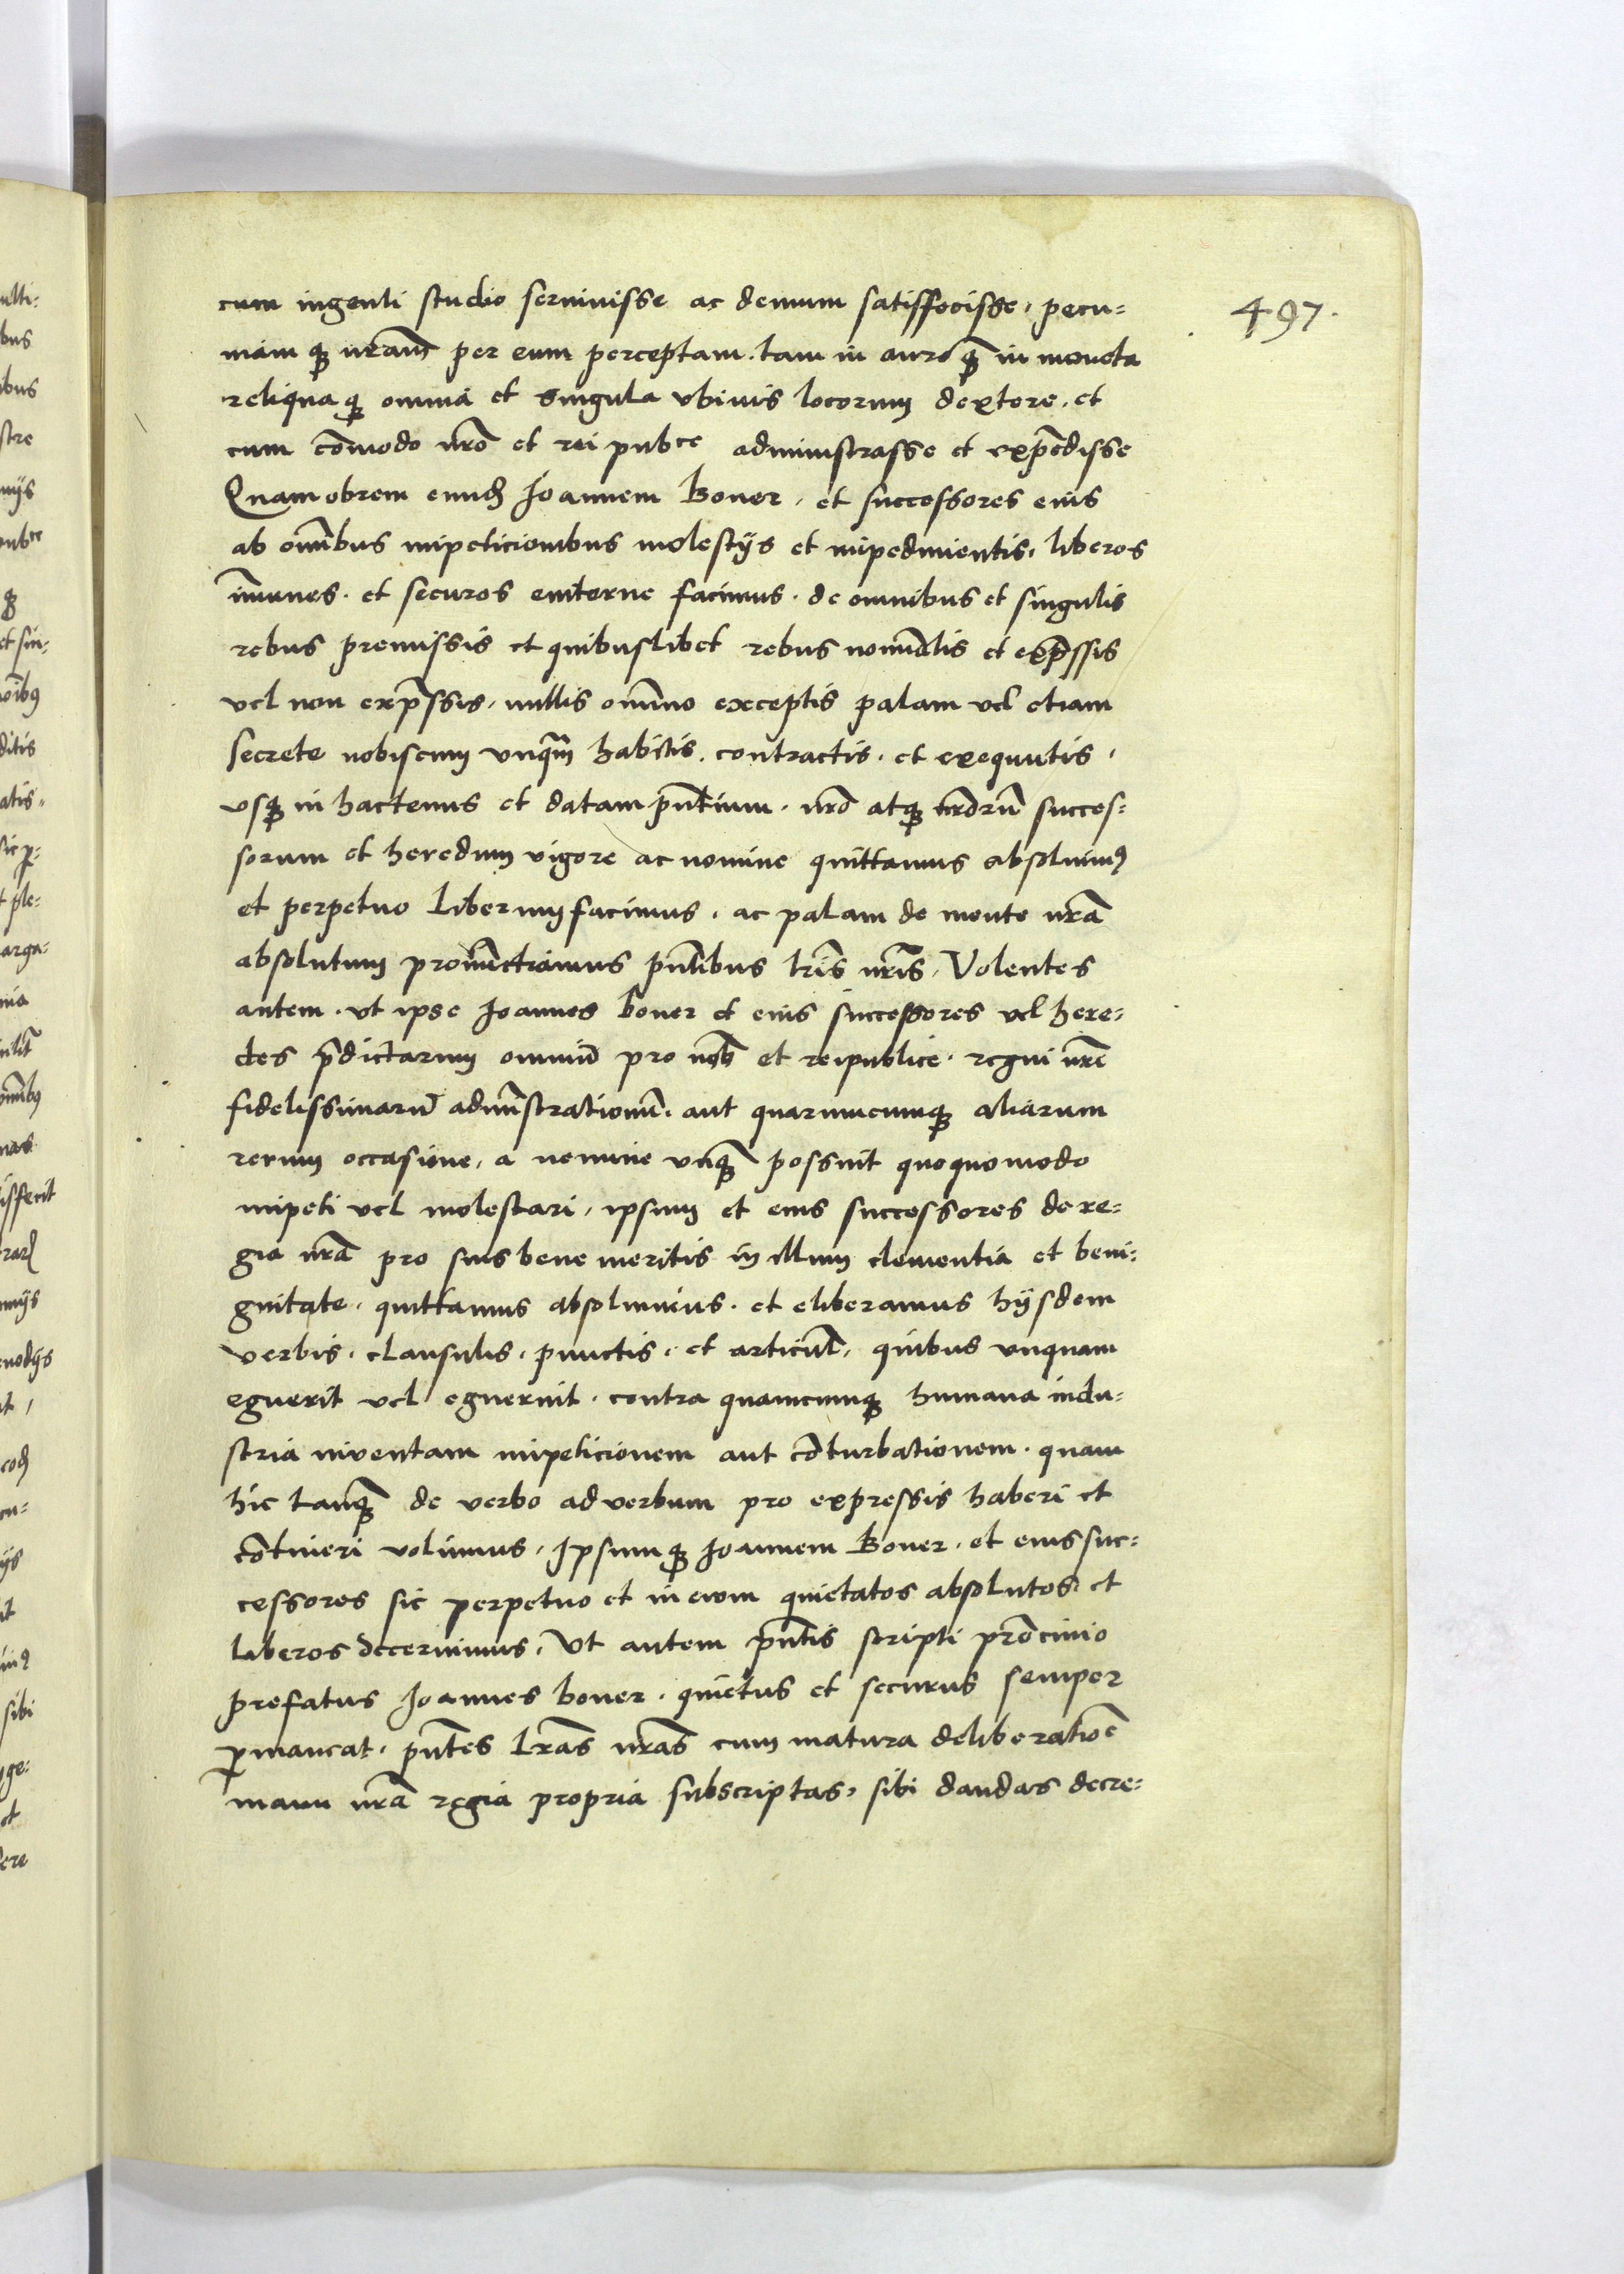 497.
cum ingenti studio servivisse ac demum satisffecisse, pecu=
niam q̨ nrãm per eum perceptam. tam in auro q̃ in moneta
reliqua q̨ omnia et singula ubivis locorum dextere. et
cum cõmodo nrõ et rei pubce administrasse et expẽdisse
Quam obrem eund̨ Joannem Boner, et successores eius
ab om̃ibus impeticionibus molestijs et impedimentis, liberos
im̃unes. et securos eviterne facimus. de omnibus et singulis
rebus premissis et quibuslibet rebus nominatis et exp̃ssis
vel non exp̃ssis, nullis om̃ino exceptis palam vel etiam
secrete nobiscum unq̃m habitis. contractis. et exequutis,
usq̨ in hactenus et datam pñtium. nrõ atq̨ nrõrũ succes=
sorum et heredum vigore ac nomine quittamus absolvimꝰ
et perpetuo liberum facimus, ac palam de mente nrã
absolutum pronũctiamus pñtibus lrĩs nrĩs, Volentes
autem. ut ipse Joannes boner et eius successores vel here=
des p̃dictarum omniũ pro nob̃ et reipublice. regni nrĩ
fidelissimarũ admĩstrationũ. aut quarumcumq̨ aliarum
rerum occasione, a nemine unq̃ possint quoquomodo
impeti vel molestari, ipsum et eius successores de re=
gia nrã pro suis bene meritis in illum clementia et beni=
gnitate, quittamus absolvimus. et eliberamus hijsdem
verbis. clausulis. punctis. et articul̃, quibus unquam
eguerit vel eguerint. contra quamcumq̨ humana indu=
stria inventam impeticionem aut cõturbationem. quam
hic tanq̃ de verbo ad verbum pro expressis haberi et
cõtineri volumus, Ipsumq̨ Joannem Boner. et eius suc=
cessores sic perpetuo et in evom quietatos absolutos et
liberos decernimus, Ut autem pñtis scripti prõcinio
prefatus Joannes boner. quietus et securus semper
ꝑmaneat. pñtes lrãs nrãs cum matura deliberatiõe
manu nrã regia propria subscriptas, sibi dandas decre=